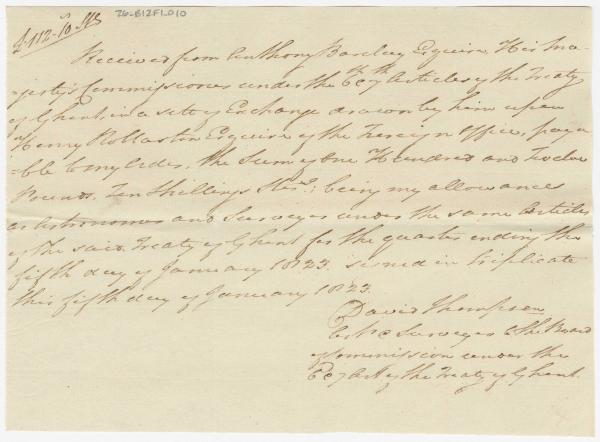 £.112-10 Stg
26-B12F1.010
Received from Anthony Barclay Esquire His Ma-
-jesty's Commissioner under the 6 & 7th Articles of the Treaty
of Ghent, in a set of Exchange drawn by him upon
Henry Rollaston Esquire of the Foreign Office, paya-
-ble to my Order, the Sum of One Hundred and Twelve
Pounds, Ten Shillings Sterg: being my allowances
as Astronomer and Surveyor under the same Articles
of the said Treaty of Ghent for the quarter ending the
fifth day of January 1823. signed in triplicate
this fifth day of January 1823.
David Thompson
Ast & Surveyor to the Board
of Commission under the
6 & 7 Art of the Treaty of Ghent.